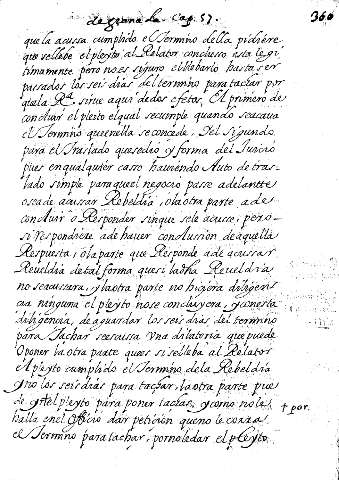 de grana da Cap. 57. 366
que la acussa cumplido el termino della pidiere
que se llebe el pleyto al Relator conclusso esta legi
timamente pero no es siguro el llebarlo hasta ser
passados los seis dias del termino para tachar por
que la Rª. sirue aqui de dos efetos, El primero de
concluir el pleito el qual se cumple quando se acaua
el termino que en ella se concede, Y el sigundo
para el traslado que se dio y forma del Juicio
pues en qualquier casso hauiendo Auto de tras
lado simple para que el negocio passe adelantte
o se a de acussar Rebeldia, o la otra parte a de
concluir o Responder sin que se le acuse; pero
si respondiere a de hauer conclussion de aquella
Respuesta; o la parte que Responde a de acussar
Reueldia de tal forma que si la dha Reueldia
no se acussara, y la otra parte no hiçiera diligen
cia ninguna el pleyto no se concluyera, y con esta
diligencia, de aguardar los seis dias del termino
para tachar se escussa Vna dilatoria que puede
Oponer la otra partte que es si se lleba al Relator
el pleyto cumplido el termino de la Rebeldia
y no los seis dias para tachar, la otra parte pue
de pedir el pleyto para poner tachas, y como no le
halla en el offiçio dar petiçion que no le corra
el termino para tachar, por no le dar el pleyto
† por.